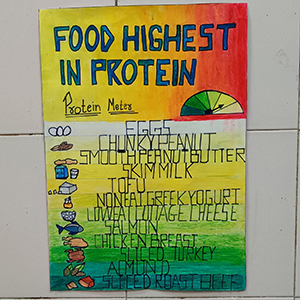 FOOD HIGHEST
IN PROTEIN
Protein Meter
EGGS
CHUNKY PEANUT
SMOOTH PEANUT BUTTER
SKIM MILK
TOFU
NONFAT GREEK YOGURT
LOWFAT COTTAGE CHEESE
SALMON
CHICKEN BREAST
SLICED TURKEY
ALMOND
SLICED ROAST BEEF